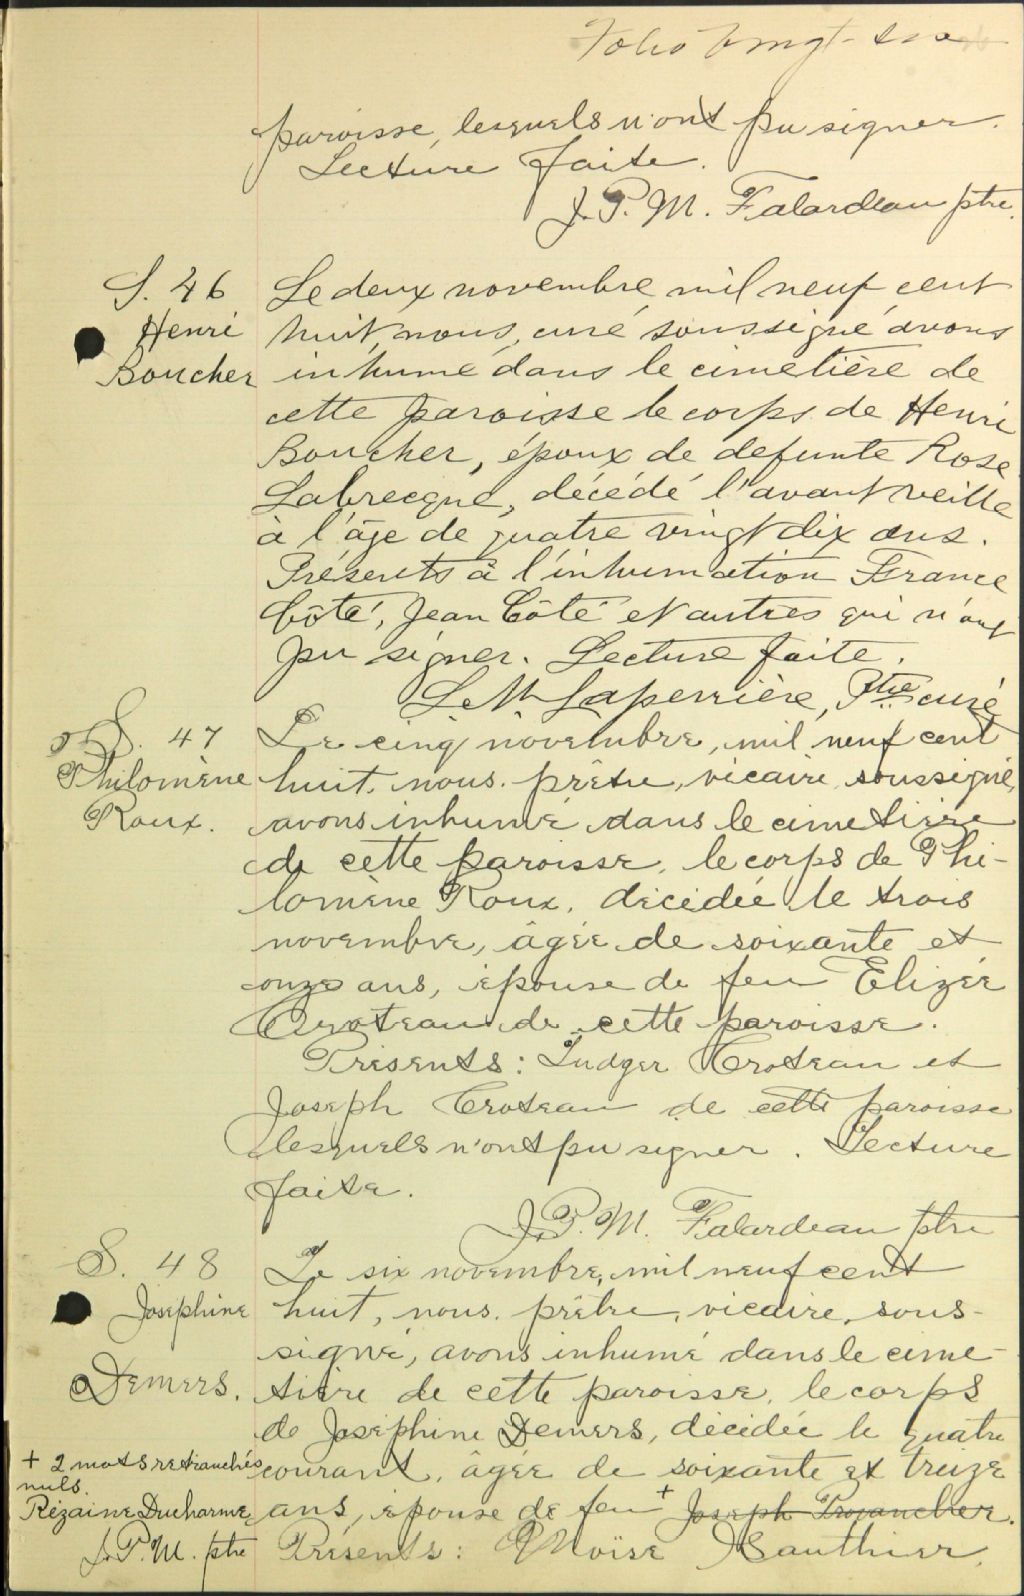 Folio vingt-six
paroisse, lesquels n'ont pu signer.
Lecture faite.
J. P. M. Falardeau ptre.
S. 46
Henri
Boucher
Le deux novembre mil neuf cent
huit, nous, curé soussigné avons
inhumé dans le cimetière de
cette paroisse le corps de Henri
Boucher, époux de defunte Rose
Labrecque, décédé l'avant veille
à l'âge de quatre vingt dix ans.
Présents à l'inhumation France
Côté, Jean Côté et autres qui n'ont
pu signer. Lecture faite.
L. M. Laperrière, Ptre curé
S. 47
Philomène
Roux.
Le cinq novembre, mil neuf cent
huit, nous, prêtre, vicaire soussigné,
avons inhumé dans le cimetière
de cette paroisse, le corps de Phi-
lomène Roux, décédée le trois
novembre, âgée de soixante et
onze ans, épouse de feu Elizée
Croteau de cette paroisse.
Présents: Ludger Croteau et
Joseph Croteau de cette paroisse
lesquels n'ont pu signer. Lecture
faite.
J. P. M. Falardeau ptre
S. 48
Josephine
Demers.
Le six novembre, mil neuf cent
huit, nous, prêtre, vicaire, sous-
signé, avons inhumé dans le cime-
tière de cette paroisse, le corps
de Joséphine Demers, décédée le quatre
courant, âgée de soixante et treize
ans, épouse de feu + Joseph
Présents: Moïse Gauthier,
+ 2 mots retranchés
nuls.
Rézaine Ducharme
J. P. M. ptre